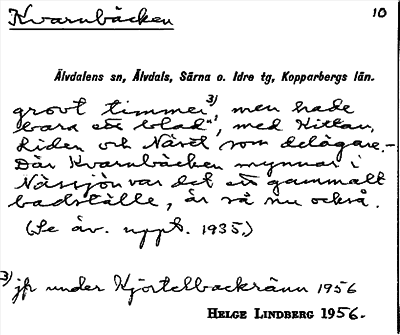 Kvarnbäcken 10
Älvdalens sn, Älvdals, Särna o. Idre tg, Kopparbergs län.
grovt timmer 3) men hade
bara ett blad", med Kittan,
Liden och Näset som delägare.-
Där Kvarnbäcken mynnar i
Nässjön var det ett gammalt
badställe, är så nu också.
(Se äv. uppt. 1935.)
3) jfr under Hjortelbackränn 1956
HELGE LINDBERG 1956.